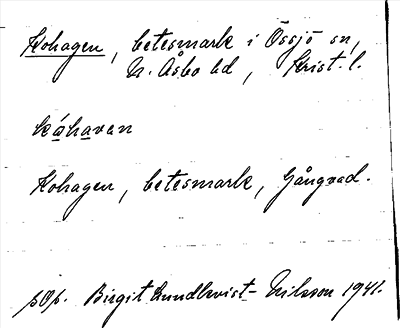 Kohagen, betesmark i Össjö sn,
N. Åsbo hd, Krist. l.
kåhavan
Kohagen, betesmark, Gångvad.
Birgit Lundkvist-Nilsson 1941.